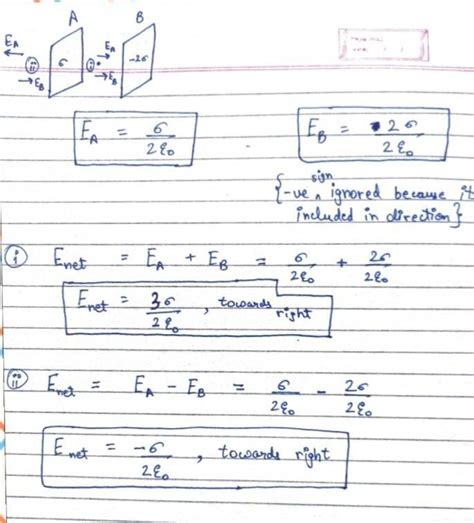 A B
E_A σ ii i E_A -2σ
→E_B →E_B
E_A = σ/2ε₀ E_B = 2σ/2ε₀
{-ve sign ignored because it
included in direction}
i E_net = E_A + E_B = σ/2ε₀ + 2σ/2ε₀
E_net = 3σ/2ε₀, towards right
ii E_net = E_A - E_B = σ/2ε₀ - 2σ/2ε₀
E_net = -σ/2ε₀, towards right